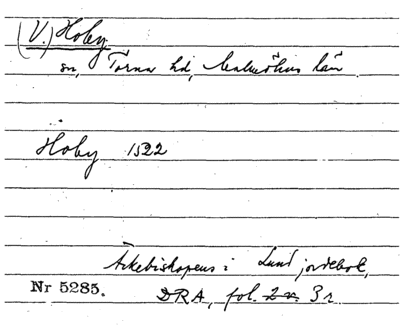 (V.) Hoby
sn, Torna hd, Malmöhus län
Hoby 1522
Ärkebiskopens i Lund jordebok,
Nr 5285. DRA, fol. 2 v. 3 r